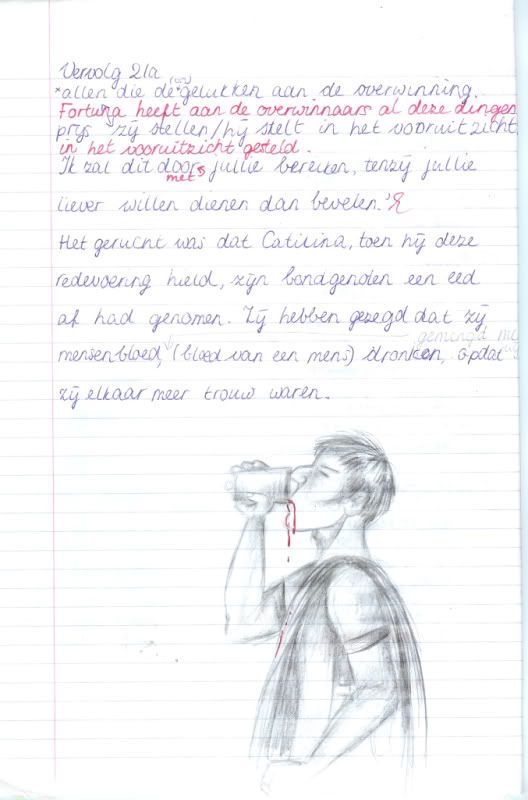 Vervolg 21a
*allen die de gelukken aan de overwinning.
Fortuna heeft aan de overwinnaars al deze dingen
prijs zij stellen/hij stelt in het vooruitzicht,
in het vooruitzicht gesteld.
Ik zal dit door jullie bereiken, tenzij jullie
met
liever willen dienen dan bevelen.'
Het gerucht was dat Catilina, toen hij deze
redevoering hield, zijn bondgenoten een eed
af had genomen. Zij hebben gezegd dat zij
gemengd
mensenbloed, (bloed van een mens) dronken, opdat
zij elkaar meer trouw waren.